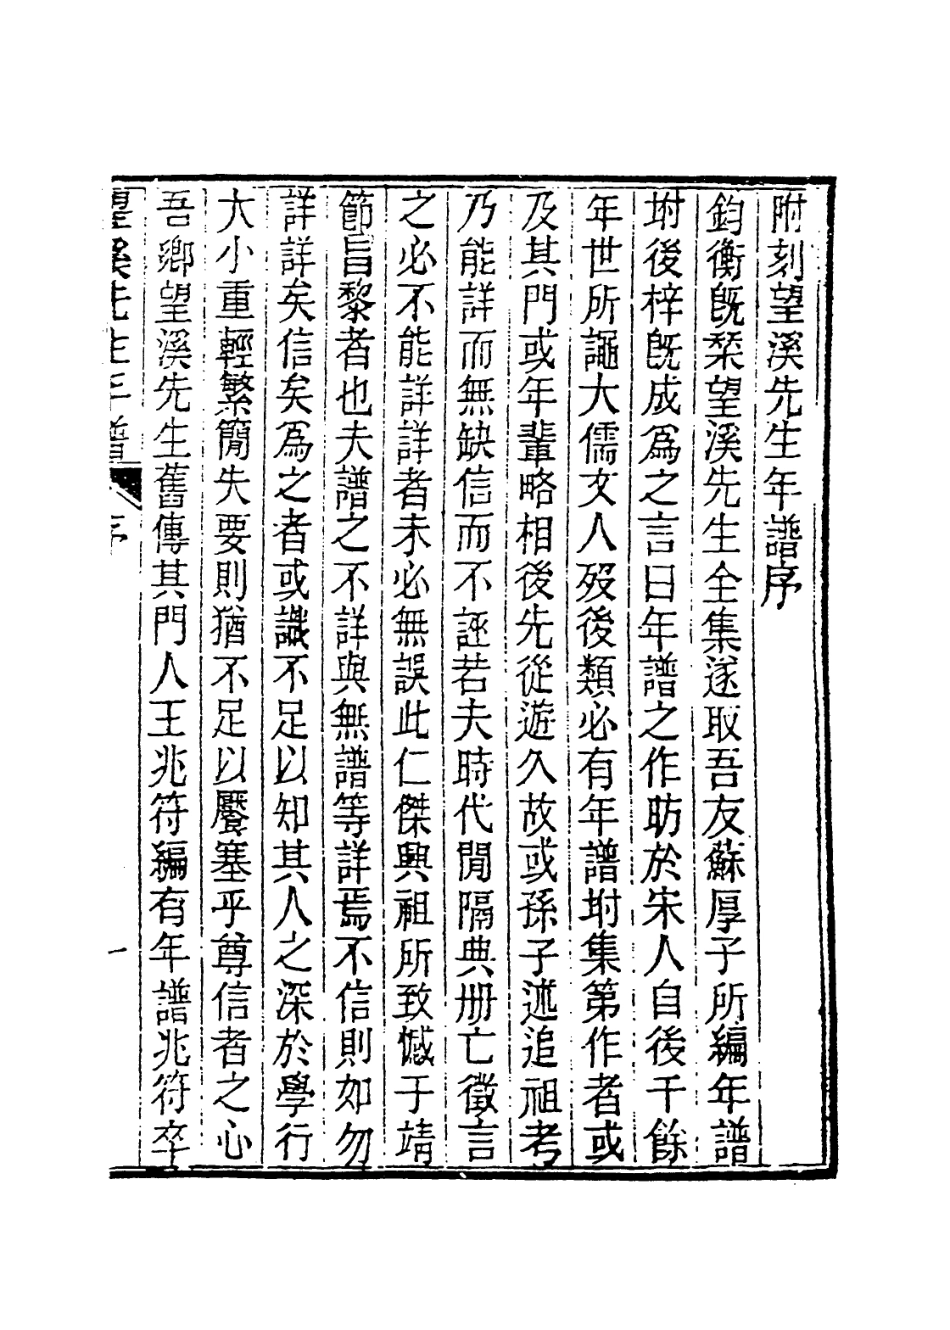 附刻望溪先生年譜序
鈞衡旣栞望溪先生全集遂取吾友蘇厚子所編年譜
坿後梓旣成爲之言曰年譜之作昉於宋人自後千餘
年世所謳大儒文人歿後類必有年譜坿集第作者或
及其門或年輩略相後先從遊久故或孫子述追祖考
乃能詳而無缺信而不誣若夫時代閒隔典册亡徵言
之必不能詳詳者未必無誤此仁傑興祖所致憾于靖
節昌黎者也夫譜之不詳與無譜等詳焉不信則如勿
詳詳矣信矣爲之者或識不足以知其人之深於學行
大小重輕繁簡失要則猶不足以饜塞乎尊信者之心
吾鄉望溪先生舊傳其門人王兆符編有年譜兆符卒
望溪先生年譜 序 一